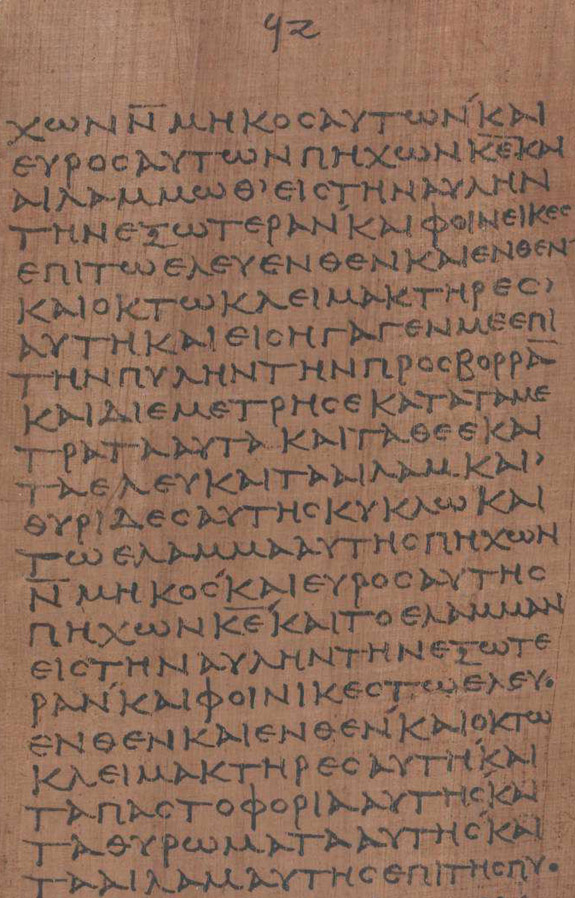 ϤΖ
ΧωΝ Ν̅ ΜΗΚΟϹΑΥΤωΝ ́ΚΑΙ
ΕΥΡΟϹΑΥΤωΝΠΗΧωΝΚ̅Ε̅ΚΑΙ
ΑΙΛΑΜΜωΘ’ΕΙϹΤΗΝΑΥΛΗΝ
ΤΗΝΕΞωΤΕΡΑΝ ́ΚΑΙΦΟΙΝΕΙΚΕϹ
ΕΠΙΤωΕΛΕΥΕΝΘΕΝΚΑΙΕΝΘΕΝ
ΚΑΙΟΚΤωΚΛΕΙΜΑΚΤΗΡΕϹ’
ΑΥΤΗΚΑΙΕΙϹΗΓΑΓΕΝΜΕΕΠΙ
ΤΗΝΠΥΛΗΝΤΗΝΠΡΟϹΒΟΡΡΑ̅
ΚΑΙΔΙΕΜΕΤΡΗϹΕΚΑΤΑΤΑΜΕ
ΤΡΑΤΑΑΥΤΑ ΚΑΙΤΑΘΕΕΚΑΙ
ΤΑΕΛΕΥΚΑΙΤΑΑΙΛΑΜ ΚΑΙ’
ΘΥΡΙΔΕϹΑΥΤΗϹΚΥΚΛωΚΑΙ
ΤωΕΛΑΜΜΑΑΥΤΗϹΠΗΧωΝ
Ν̅ ΜΗΚΟϹ ́ΚΑΙΕΥΡΟϹΑΥΤΗϹ
ΠΗΧωΝΚ̅Ε̅ ́ΚΑΙΤΟΕΛΑΜΜΑΝ
ΕΙϹΤΗΝΑΥΛΗΝΤΗΝΕΞωΤΕ
ΡΑΝ ́ΚΑΙΦΟΙΝΙΚΕϹΤωΕΛΕΥ·
ΕΝΘΕΝΚΑΙΕΝΘΕΝ ́ΚΑΙΟΚΤω
ΚΛΕΙΜΑΚΤΗΡΕϹΑΥΤΗ ́ΚΑΙ
ΤΑΠΑϹΤΟΦΟΡΙΑΑΥΤΗϹ ́ΚΑΙ
ΤΑΘΥΡωΜΑΤΑΑΥΤΗϹ ́ΚΑΙ
ΤΑΑΙΛΑΜΑΥΤΗϹΕΠΙΤΗϹΠΥ·